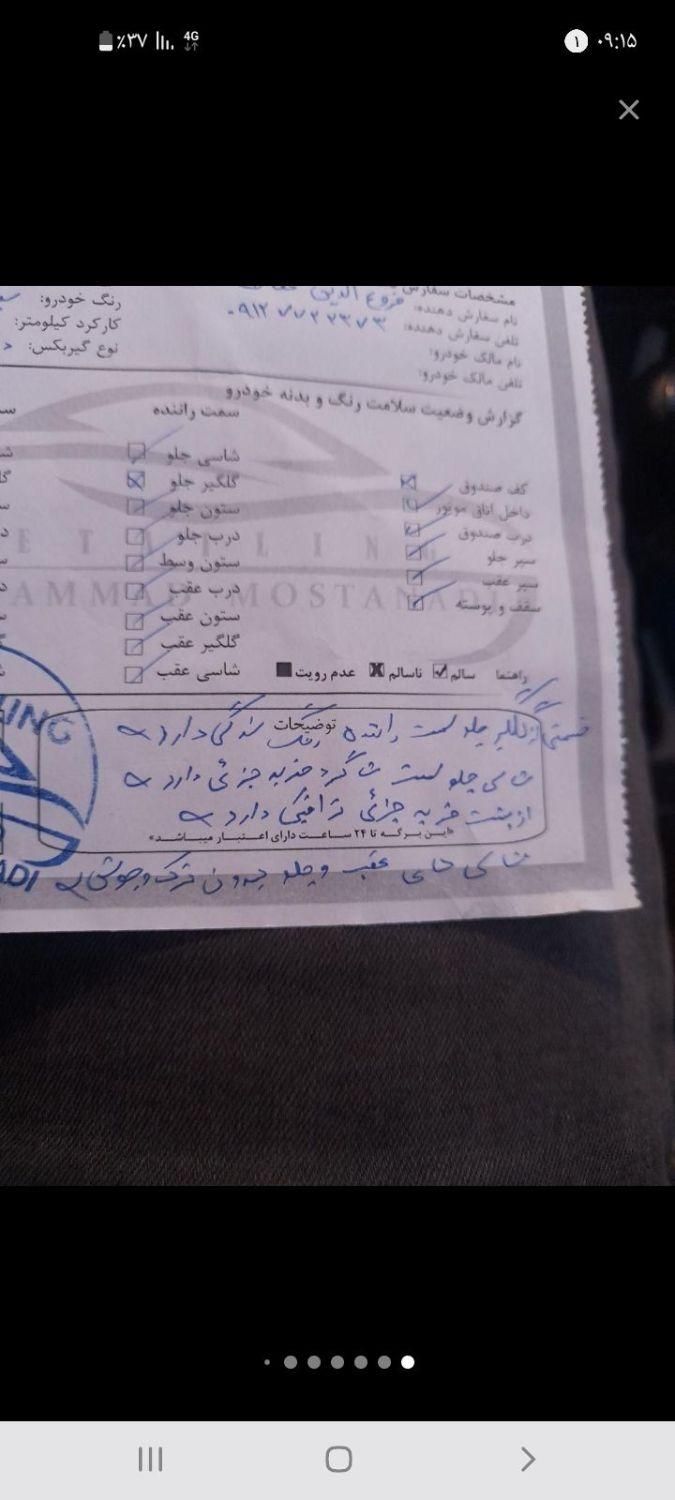 ۰۹:۱۵
۱
4G
٪۳۷
مشخصات سفارش
نام سفارش دهنده:
تلفن سفارش دهنده: ۰۹۱۲۷۷۲۲۳۷۳
نام مالک خودرو:
تلفن مالک خودرو:
رنگ خودرو:
کارکرد کیلومتر:
نوع گیربکس:
گزارش وضعیت سلامت رنگ و بدنه خودرو
کف صندوق
داخل اتاق موتور
درب صندوق
سپر جلو
سپر عقب
سقف و پوسته
سمت راننده
شاسی جلو
گلگیر جلو
ستون جلو
درب جلو
ستون وسط
درب عقب
ستون عقب
گلگیر عقب
شاسی عقب
ETAILING
AMMAD MOSTANADI
راهنما سالم ناسالم عدم رویت
توضیحات
قسمتی از گلگیر جلو سمت راننده رنگ شدگی دارد
شاسی جلو سمت شاگرد ضربه جزئی دارد
از پشت ضربه جزئی ترافیکی دارد
«این برگه تا ۲۴ ساعت دارای اعتبار میباشد»
شاسی های عقب و جلو بدون ترک و جوش
ING
ADI